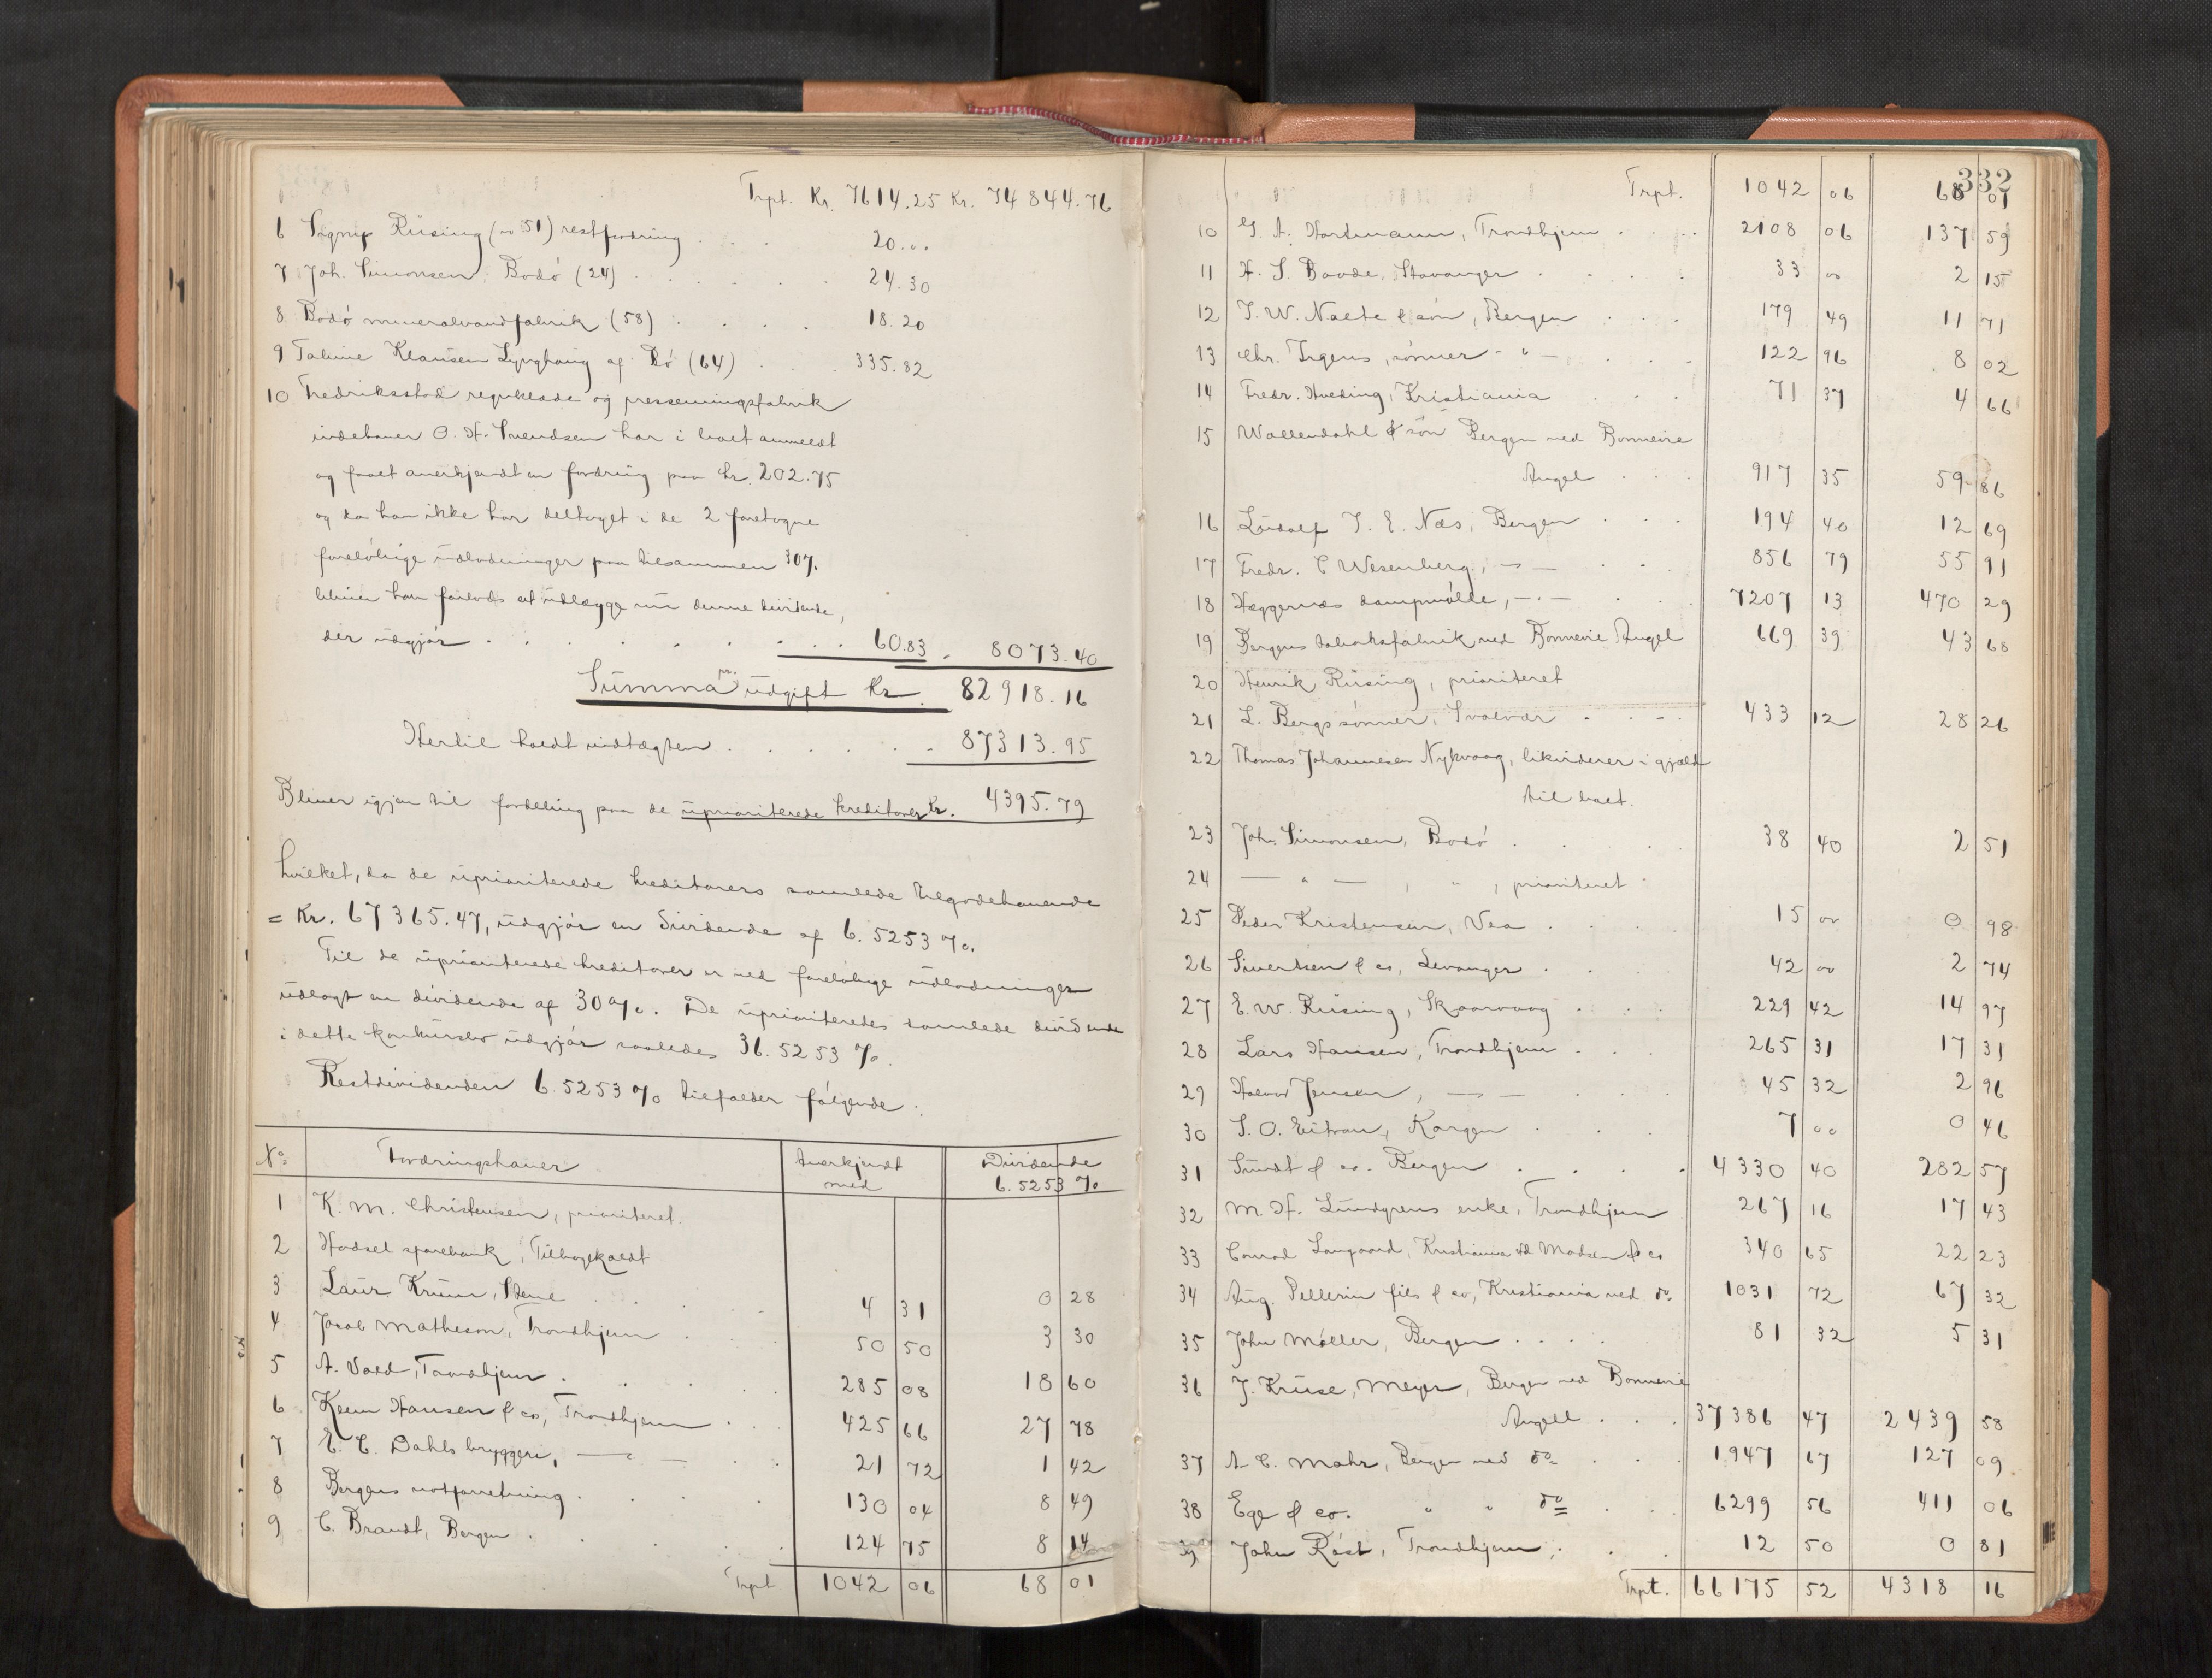 Trpt. Kr. 7614.25 Kr. 74844.76
6 Signy Rüsing (no 51) restfordring . . . 20.00
7 Joh. Simonsen, Bodó (24) . . . . . . 24.30
8 Bodó mineralvandfabrik (58) . . . . 18.20
9 Taline Klausen Lynghaug af Bó (64) . . . 335.82
10 Fredriksstad repslaade og pressenningsfabrik
indehaver O. H. Svendsen har i boet anmeldt
og faaet anerkjendt en fordring paa kr. 202.75
og da han ikke har deltaget i de 2 foretagne
forelóbige udlodninger paa tilsammen 30%.
bliver han forlods at udlægge nu denne dividende,
der udgjór . . . . . . . . 60.83 . 8073.40
Summa pr. udgift Kr. 82918.16
Hertil holdt indtægten . . . . . . . 87313.95
Bliver igjen til fordeling paa de uprioriterede kreditorer Kr. 4395.79
hvilket, da de uprioriterede kreditorers samlede tilgodehavende
= Kr. 67365.47, udgjór en dividende af 6.5253 %.
Til de uprioriterede kreditorer er ved forelóbige udlodninger
udlagt en dividende af 30 %. De uprioriteredes samlede dividende
i dette konkursbo udgjór saaledes 36.5253 %.
Restdividenden 6.5253 % tilfalder fólgende:
No. Fordringshaver Anerkjendt med Dividende 6.5253 %
1 K. M. Christensen, prioriteret.
2 Hadsel sparebank, Tilbagekaldt
3 Laur. Kruse, Stene . . . . 4 31 0 28
4 Jacob Matheson, Trondhjem . . . 50 50 3 30
5 A. Vold, Trondhjem . . . . 285 08 18 60
6 Keim Hansen & co, Trondhjem . . 425 66 27 78
7 E. C. Dahls bryggeri, — " — . . 21 72 1 42
8 Bergens notforretning . . . . 130 04 8 49
9 C. Brandt, Bergen . . . . . 124 75 8 14
Trpt 1042 06 68 01
332
Trpt. 1042 06 68 01
10 G. A. Hartmann, Trondhjem . . . 2108 06 137 59
11 H. S. Baade, Stavanger . . . . 33 00 2 15
12 J. W. Naete & són, Bergen . . . 179 49 11 71
13 Chr. Irgens, sónner - " - . . . 122 96 8 02
14 Fredr. Hveding, Kristiania . . . 71 37 4 66
15 Wallendahl & són Bergen ved Bonnevie
Angel . . . 917 35 59 86
16 Ludolf J. E. Næs, Bergen . . . 194 40 12 69
17 Fredr. C Wesenberg, - " - . . 856 79 55 91
18 Vaggernæs dampmólle, - " - . . 7207 13 470 29
19 Bergens tobaksfabrik ved Bonnevie Angel 669 39 43 68
20 Henrik Rüsing, prioriteret
21 L. Bergs sónner, Svolvær . . . 433 12 28 26
22 Thomas Johannesen Nykvaag, likviderer i gjæld
til boet.
23 Joh. Simonsen, Bodó . . . . 38 40 2 51
24 — " — , " , prioriteret
25 Peder Kristensen, Vea . . . . 15 00 0 98
26 Sivertsen & co, Levanger . . . 42 00 2 74
27 E. W. Rüsing, Skaarvaag . . . 229 42 14 97
28 Lars Hansen, Trondhjem . . . 265 31 17 31
29 Halvor Jensen, — " — . . . 45 32 2 96
30 S. O. Eitran, Kargen . . . 7 00 0 46
31 Sundt & co. Bergen . . . . 4330 40 282 57
32 M. H. Lundgrens enke, Trondhjem 267 16 17 43
33 Conrad Langaard, Kristiania vd Madsen & co 340 65 22 23
34 Aug. Pellerin fils & co, Kristiania ved do. 1031 72 67 32
35 John Móller, Bergen . . . . 81 32 5 31
36 J. Kruse, Meyer, Bergen ved Bonnevie
Angell . . . 37386 47 2439 58
37 A. C. Mohr, Bergen ved do . . 1947 67 127 09
38 Ege & co. " " do . . 6299 56 411 06
39 John Róst, Trondhjem . . . 12 50 0 81
Trpt. 66175 52 4318 16